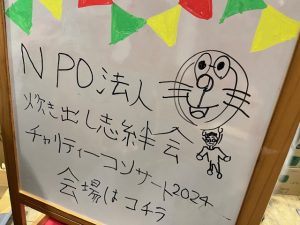 NPO法人
炊き出し志絆会
チャリティーコンサート2024
会場はコチラ